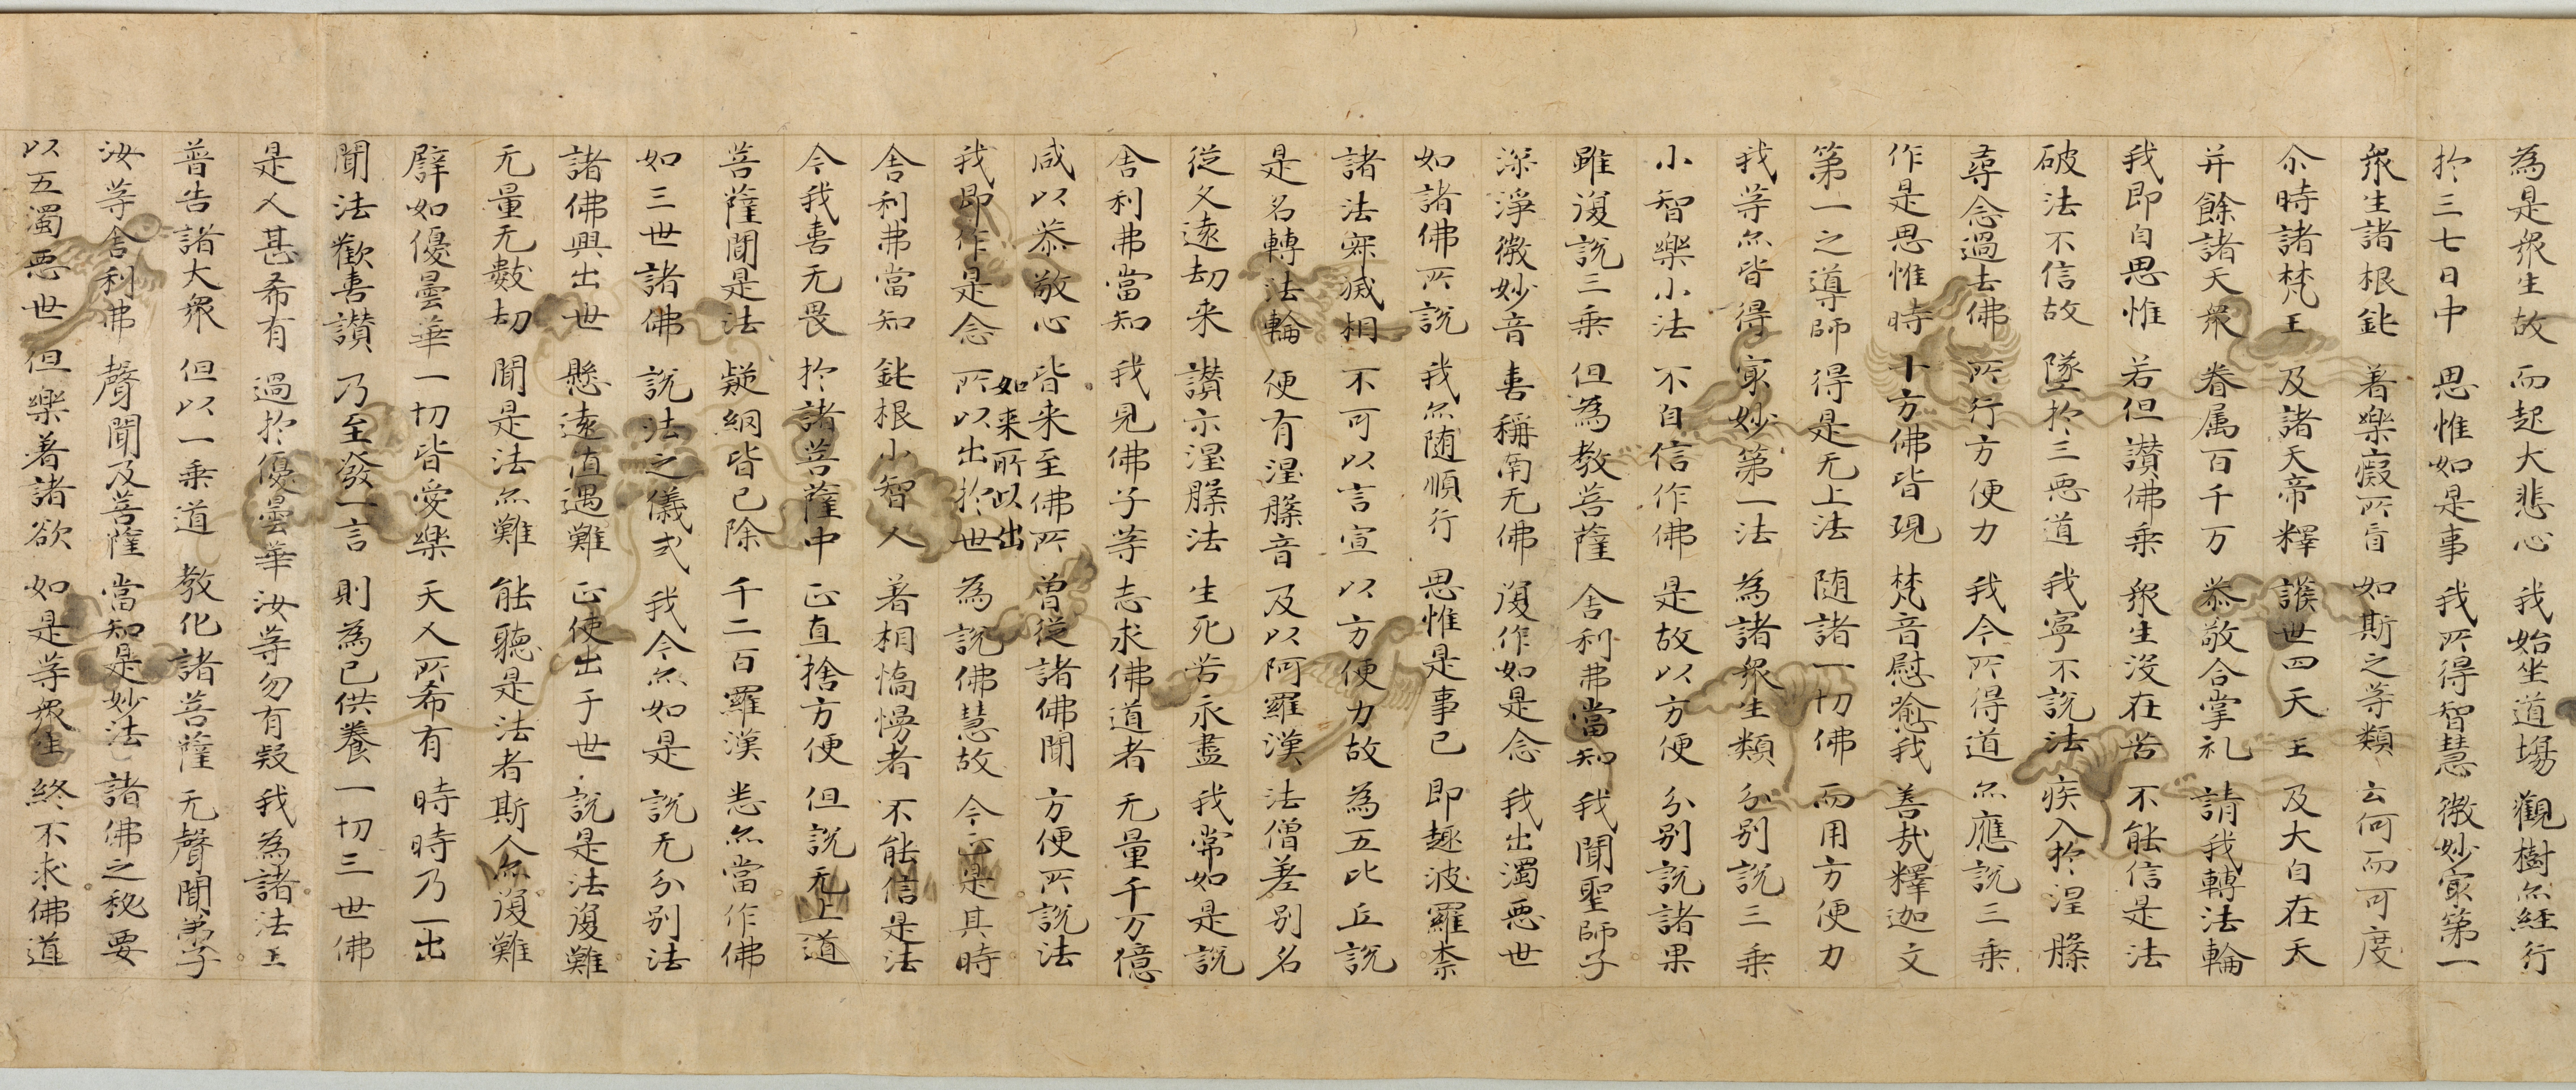 為是衆生故 而起大悲心 我始坐道場 觀樹亦経行
於三七日中 思惟如是事 我所得智慧 微妙冣第一
衆生諸根鈍 著樂癡所盲 如斯之等類 云何而可度
尒時諸梵王 及諸天帝釋 護世四天王 及大自在天
并餘諸天衆 眷属百千万 恭敬合掌礼 請我轉法輪
我即自思惟 若但讃佛乗 衆生没在苦 不能信是法
破法不信故 墜於三悪道 我寧不説法 疾入於涅槃
尋念過去佛 所行方便力 我今所得道 亦應説三乗
作是思惟時 十方佛皆現 梵音慰喻我 善哉釋迦文
第一之導師 得是无上法 随諸一切佛 而用方便力
我等亦皆得 冣妙第一法 為諸衆生類 分別説三乗
小智樂小法 不自信作佛 是故以方便 分別説諸果
雖復説三乗 但為教菩薩 舍利弗當知 我聞聖師子
深淨微妙音 喜稱南无佛 復作如是念 我出濁悪世
如諸佛所説 我亦随順行 思惟是事已 即趣波羅柰
諸法寂滅相 不可以言宣 以方便力故 為五比丘説
是名轉法輪 便有涅槃音 及以阿羅漢 法僧差別名
従久遠劫来 讃示涅槃法 生死苦永盡 我常如是説
舍利弗當知 我見佛子等 志求佛道者 无量千万億
咸以恭敬心 皆来至佛所 曽従諸佛聞 方便所説法
如来所以出
我即作是念 所以出於世 為説佛慧故 今正是其時
舍利弗當知 鈍根小智人 著相憍慢者 不能信是法
今我喜无畏 於諸菩薩中 正直捨方便 但説无上道
菩薩聞是法 疑網皆已除 千二百羅漢 悉亦當作佛
如三世諸佛 説法之儀式 我今亦如是 説无分別法
諸佛興出世 懸遠值遇難 正使出于世 説是法復難
无量无數劫 聞是法亦難 能聽是法者 斯人亦復難
譬如優曇華 一切皆愛樂 天人所希有 時時乃一出
聞法歡喜讃 乃至發一言 則為已供養 一切三世佛
是人甚希有 過於優曇華 汝等勿有疑 我為諸法王
普告諸大衆 但以一乗道 教化諸菩薩 无聲聞弟子
汝等舍利弗 聲聞及菩薩 當知是妙法 諸佛之秘要
以五濁悪世 但樂著諸欲 如是等衆生 終不求佛道